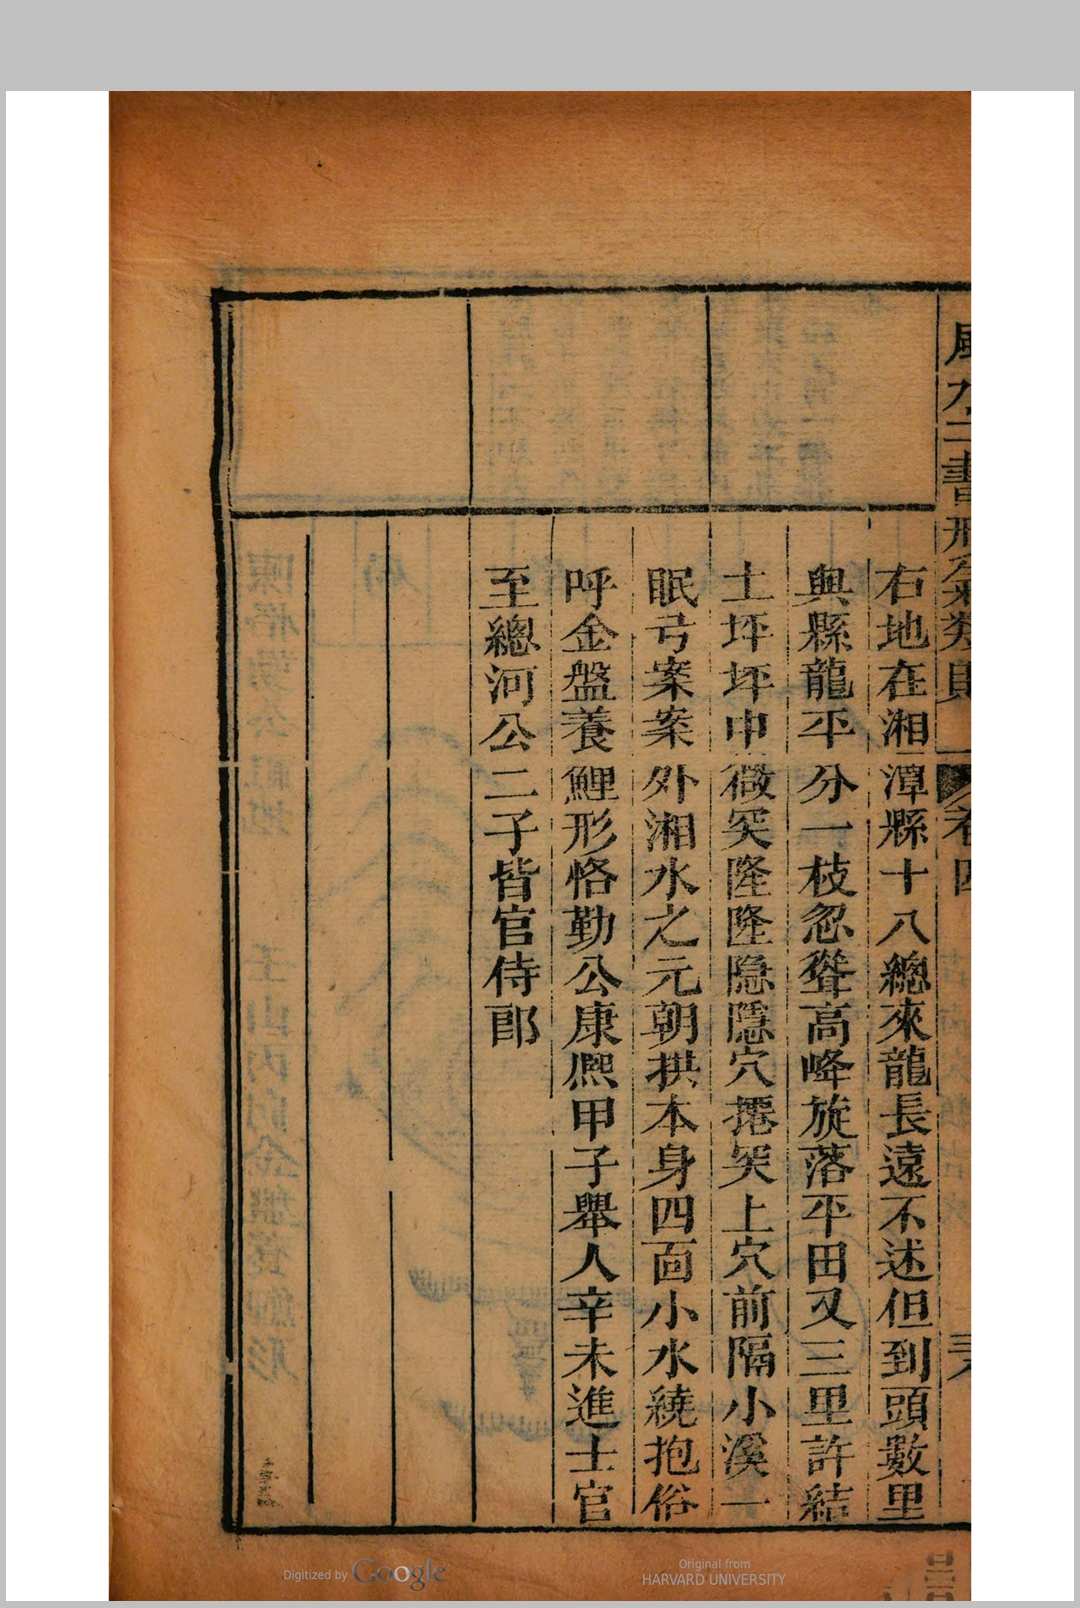 風水二書形氣類則 卷四
右地在湘潭縣十八總來龍長遠不述但到頭數里
與縣龍平分一枝忽聳高峰旋落平田又三里許結
土坪坪中微突隆隆隐隱穴撂突上穴前隔小溪一
眠弓案案外湘水之元朝拱本身四面小水繞抱俗
呼金盤養鯉形恪勤公康熙甲子舉人辛未進士官
至總河公二子皆官侍郎
Digitized by Google
Original from
HARVARD UNIVERSITY